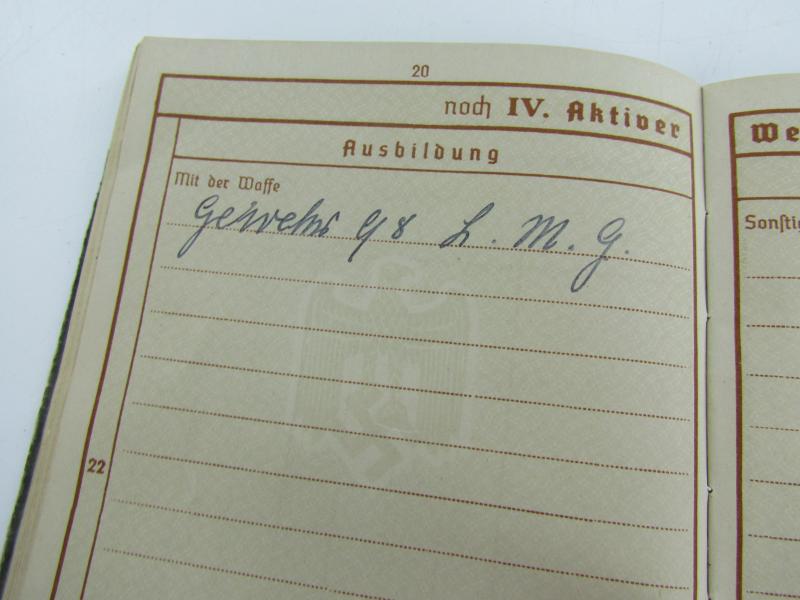 20
noch IV. Aktiver
We
Ausbildung
Mit der Waffe
Sonstig
Gewehr 98 L. M. G.
22